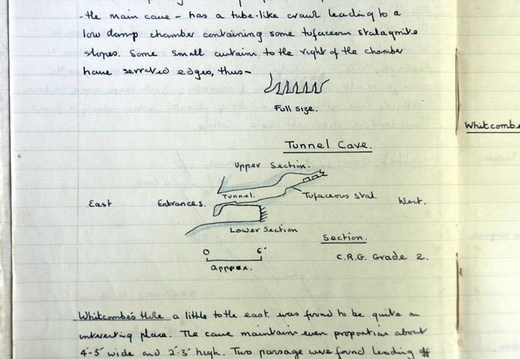 - the main cave - has a tube-like crawl leading to a
low damp chamber containing some tufaceous stalagmite
slopes. Some small curtains to the right of the chamber
have serrated edges, thus-
Full size.
Whitcombe
Tunnel Cave.
Upper Section.
Tunnel.
Tufaceous Stal.
East
Entrances.
West.
Lower Section
Section.
0 6'
C.R.G. Grade 2.
approx.
Whitcombe's Hole a little to the east was found to be quite an
interesting place. The cave maintains even proportion about
4-5' wide and 2'-3' high. Two passage were found leading